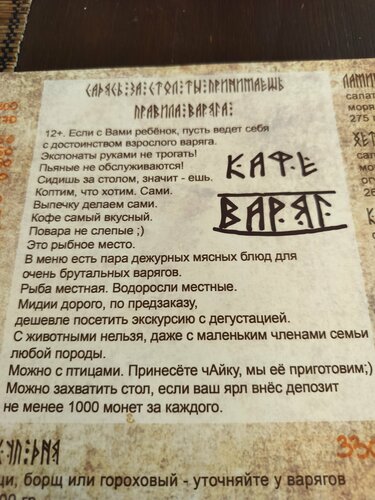 САДЯСЬ ЗА СТОЛ ТЫ ПРИНИМАЕШЬ
ПРАВИЛА ВАРЯГА:
12+. Если с Вами ребёнок, пусть ведет себя
с достоинством взрослого варяга.
Экспонаты руками не трогать!
Пьяные не обслуживаются!
Сидишь за столом, значит - ешь.
Коптим, что хотим. Сами.
Выпечку делаем сами.
Кофе самый вкусный.
Повара не слепые ;)
Это рыбное место.
В меню есть пара дежурных мясных блюд для
очень брутальных варягов.
Рыба местная. Водоросли местные.
Мидии дорого, по предзаказу,
дешевле посетить экскурсию с дегустацией.
С животными нельзя, даже с маленьким членами семьи
любой породы.
Можно с птицами. Принесёте чАйку, мы её приготовим;)
Можно захватить стол, если ваш ярл внёс депозит
не менее 1000 монет за каждого.
КАФЕ
ВАРЯГ
ЛАМИ
салат
моря
275
330
щи, борщ или гороховый - уточняйте у варягов